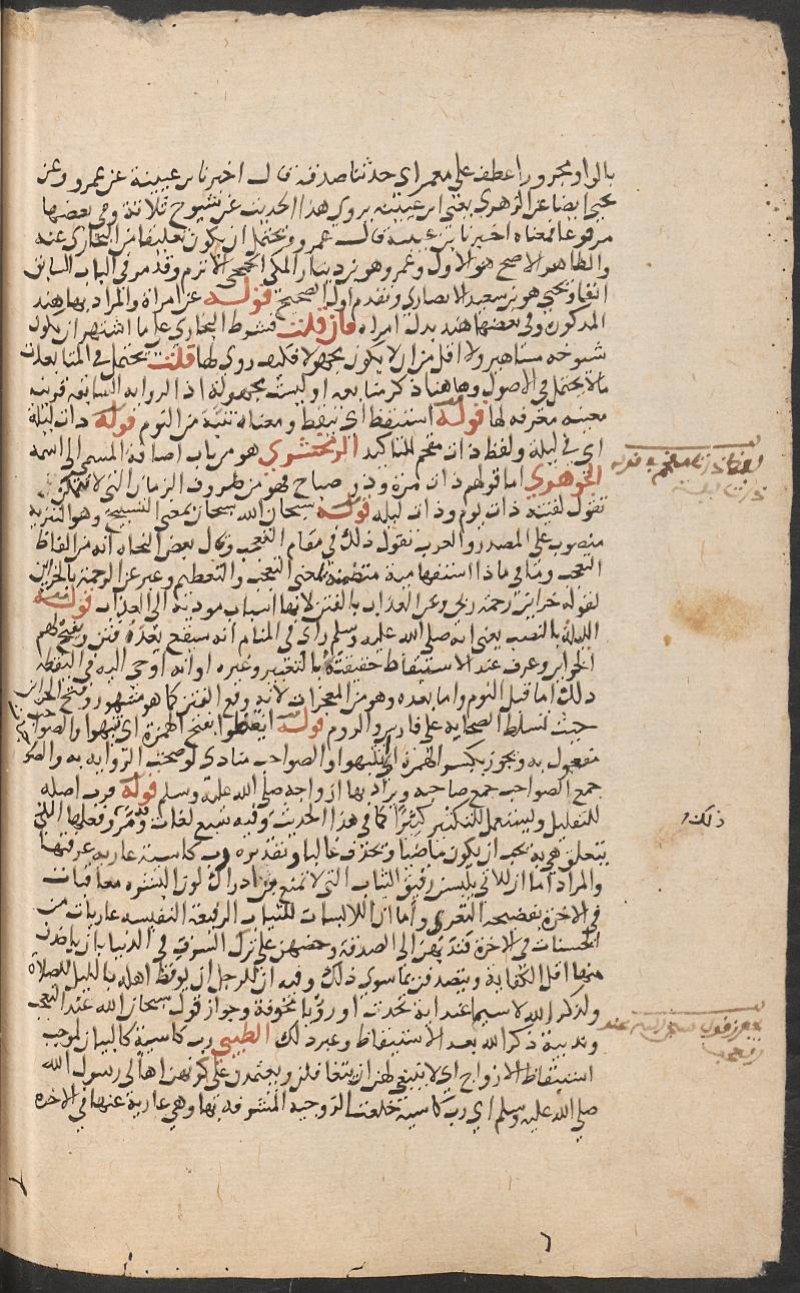 بالواو مجرورا عطف على معمر اى حدثنا صدقة قال اخبرنا ابن عيينة عن عمرو وعن
يحيى ايضا عن الزهرى يعنى ابن عيينه يروى هذا الحديث عن شيوخ ثلاثة وفى بعضها
مرفوعا فمعناه اخبرنا ابن عيينه قال عمرو ويحتمل ان يكون تعليقا من البخارى عنه
والظاهر الاصح هو الاول وعمرو هو بن دينار المكى الجمحى الاثرم وقد مر فى الباب السابق
انفا ويحيى هو بن سعيد الانصارى وتقدم اول الصحيح قوله عن امراة والمراد بها هند
المذكورة وفى بعضها هند بدل امراه فان قلت فشرط البخارى على ما اشتهر ان يكون
شيوخه مشاهير ولا اقل من ان لا يكون مجهولا فكيف روى لها قلت يحتمل فى المتابعات
مالا يحتمل فى الاصول وهاهنا ذكر متابعه او ليست مجهولة اذ الروايه السابقه قرينه
معينه معرفه لها قوله استيقظ اى تيقظ ومعناه تنبه من النوم قوله ذات ليلة
اى فى ليلة ولفظ ذات مقحم للتاكيد الزمخشرى هو من باب اضافة المسمى الى اسمه
الجوهرى اما قولهم ذات مرة وذو صباح فهو من ظروف الزمان التى لا تتمكن
تقول لقيته ذات يوم وذات ليله قوله سبحان الله سبحان بمعنى التسبيح وهو التنزيه
منصوب على المصدر والعرب تقول ذلك فى مقام التعجب وقال بعض النحاه انه من الفاظ
التعجب وما فى ماذا استفهامية متضمنه بمعنى التعجب والتعظيم وعبر عن الرحمة بالخزاين
لقوله خزاين رحمة ربى وعن العذاب بالفتن لانها اسباب موديه الى العذاب قوله
الليلة بالنصب يعنى انه صلى الله عليه وسلم راى فى المنام انه سيقع بعده فتن ويفتح لهم
الخزاين وعرف عند الاستيقاظ حقيقته بالتعبير وغيره او انه اوحى اليه فى اليقظه
ذلك اما قبل النوم واما بعده وهو من المعجزات لانه وقع الفتن كما هو مشهور وفتح الخزاين
حيث تسلط الصحابه على فارس والروم قوله ايقظوا بفتح الهمزة اى نبهوا والصواحب
مفعول به ويجوز بكسر الهمزة اى انتبهوا والصواحب منادى لو صحت الروايه به والصواحب
جمع الصواحب جمع صاحبه ويراد بها ازواجه صلى الله عليه وسلم قوله فرب اصله
للتقليل ويستعمل للتكثير كثيرا كما فى هذا الحديث وفيه سبع لغات وقد مر وفعلها الذى
يتعلق هى به يجب ان يكون ماضيا ويحذف غالبا وتقديره رب كاسية عاريه عرفتها
والمراد اما ان اللاتى يلبسن رقيق الثياب التى لا تمنع من ادراك لون البشره معاقبات
فى الاخرة بفضيحه التعرى واما ان اللابسات للثياب الرفيعة النفيسه عاريات من
الحسنات فى الاخرة فندبهن الى الصدقه وحضهن على ترك السرف فى الدنيا بان ياخذن
منها اقل الكفاية ويتصدقن بما سوى ذلك وفيه ان للرجل ان يوقظ اهله بالليل للصلاة
ولذكر الله لا سيما عند اية تحدث او رؤيا مخوفة وجواز قول سبحان الله عند التعجب
وندبية ذكر الله بعد الاستيقاظ وغير ذلك الطيبى رب كاسية كالبيان لموجب
استيقاظ الازواج اى لا ينبغى لهن ان يتغافلن ويعتمدن على كونهن اهالى رسول الله
صلى الله عليه وسلم اى رب كاسية خلعة الزوجيه المتشرفه بها وهى عارية عنها فى الاخره
لفظ ذات مقحم فى قوله
ذات ليلة
ذلك
يجوز قول سبحان الله عند
التعجب